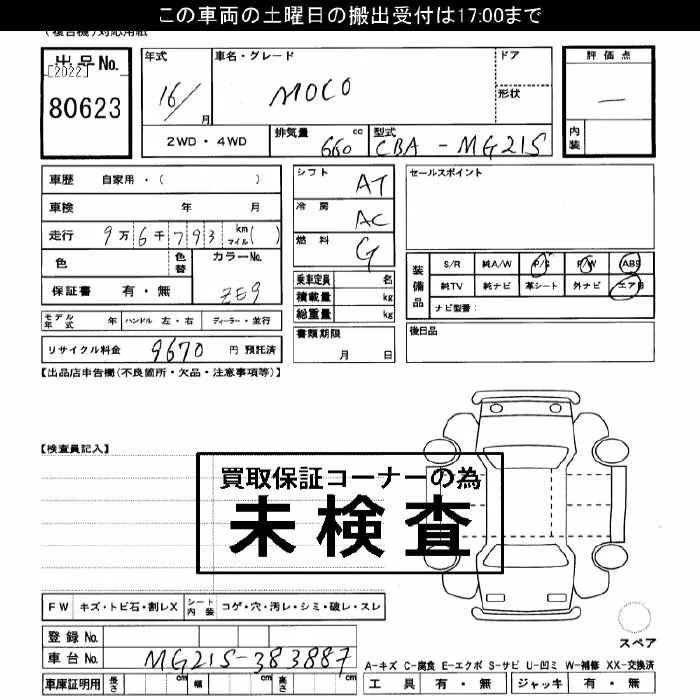 この車両の土曜日の搬出受付は17:00まで
(複合機)対応用紙
出品No.
[2022]
80623
年式
16/
月
車名・グレード
MOCO
ドア
形状
評価点
—
内装
2WD・4WD
排気量
660
cc
型式
CBA-MG21S
車歴 自家用・( )
車検 年 月
走行 9万6千793 km マイル( )
色
色替
カラーNo.
ZE9
保証書 有・無
モデル年式 年 ハンドル 左・右 ディーラー・並行
リサイクル料金 9670 円 預託済
シフト AT
冷房 AC
燃料 G
乗車定員 名
積載量 kg
総重量 kg
書類期限
月 日
セールスポイント
装備品
S/R 純A/W P/S P/W ABS
純TV 純ナビ 革シート 外ナビ エアB
ナビ型番:
後日品
【出品店申告欄(不良箇所・欠品・注意事項等)】
【検査員記入】
買取保証コーナーの為
未検査
FW キズ・トビ石・割レX シート内装 コゲ・穴・汚レ・シミ・破レ・スレ
スペア
登録No.
車台No. MG21S-383887
車庫証明用 長さ cm 幅 cm 高さ cm
A-キズ C-腐食 E-エクボ S-サビ U-凹ミ W-補修 XX-交換済
工具 有・無 ジャッキ 有・無